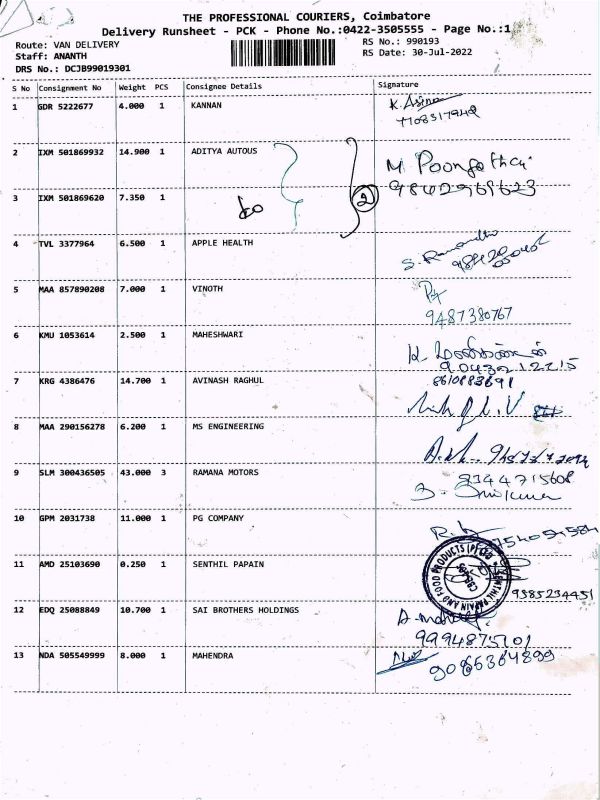 THE PROFESSIONAL COURIERS, Coimbatore
Delivery Runsheet - PCK - Phone No.:0422-3505555 - Page No.:1
Route: VAN DELIVERY
RS No.: 990193
Staff: ANANTH
RS Date: 30-Jul-2022
DRS No.: DCJB99019301
S No Consignment No Weight PCS Consignee Details Signature
1 GDR 5222677 4.000 1 KANNAN
2 IXM 501869932 14.900 1 ADITYA AUTOUS
M. Poongothai
9842969623
3 IXM 501869620 7.350 1 2
4 TVL 3377964 6.500 1 APPLE HEALTH
5 MAA 857890208 7.000 1 VINOTH
9487380767
6 KMU 1053614 2.500 1 MAHESHWARI
9043212215
7 KRG 4386476 14.700 1 AVINASH RAGHUL 8610883691
8 MAA 290156278 6.200 1 MS ENGINEERING
9 SLM 300436505 43.000 3 RAMANA MOTORS 9344715608
10 GPM 2031738 11.000 1 PG COMPANY
11 AMD 25103690 0.250 1 SENTHIL PAPAIN
SENTHIL PAPAIN AND FOOD PRODUCTS (P) LTD
9585234451
12 EDQ 25088849 10.700 1 SAI BROTHERS HOLDINGS
9994875101
13 NDA 505549999 8.000 1 MAHENDRA
9086384899